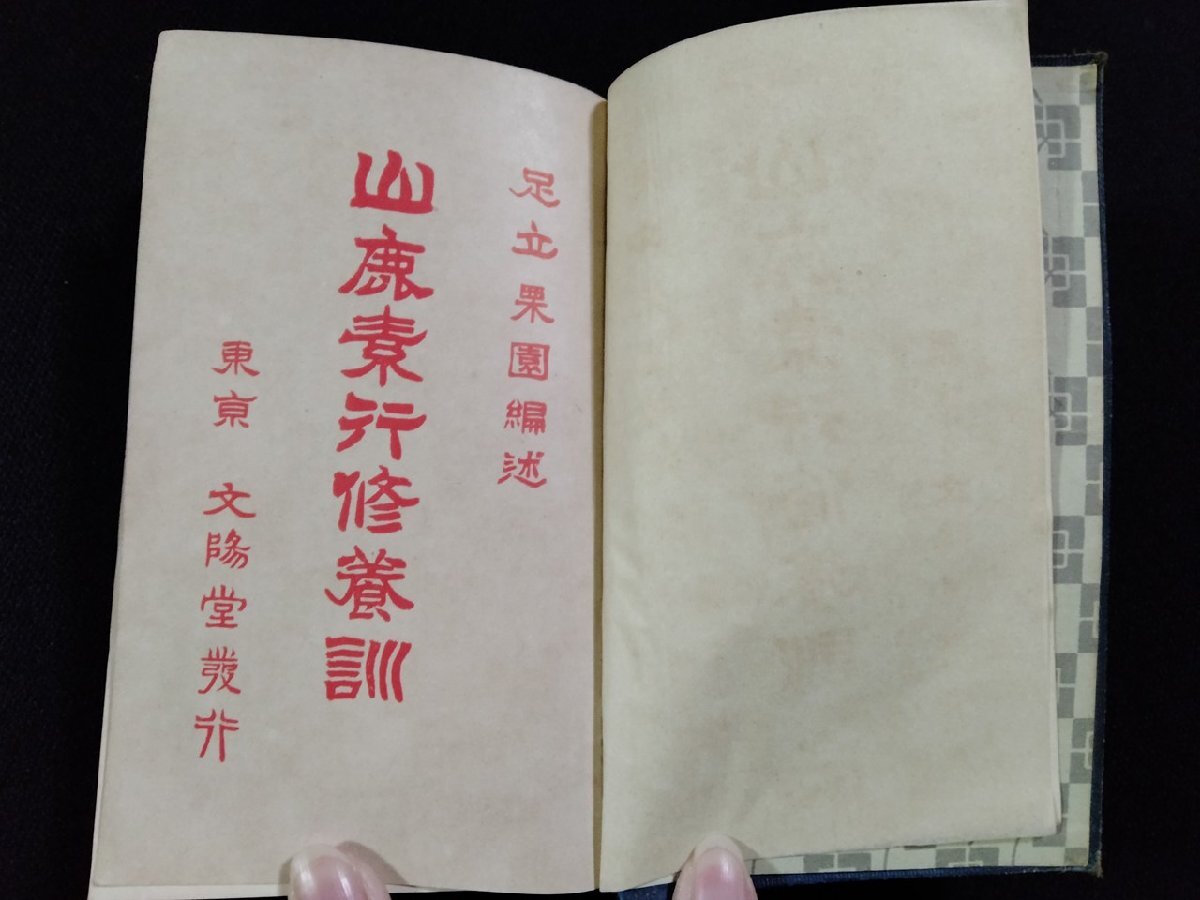 足立栗園編述
山鹿素行修養訓
東京 文陽堂發行